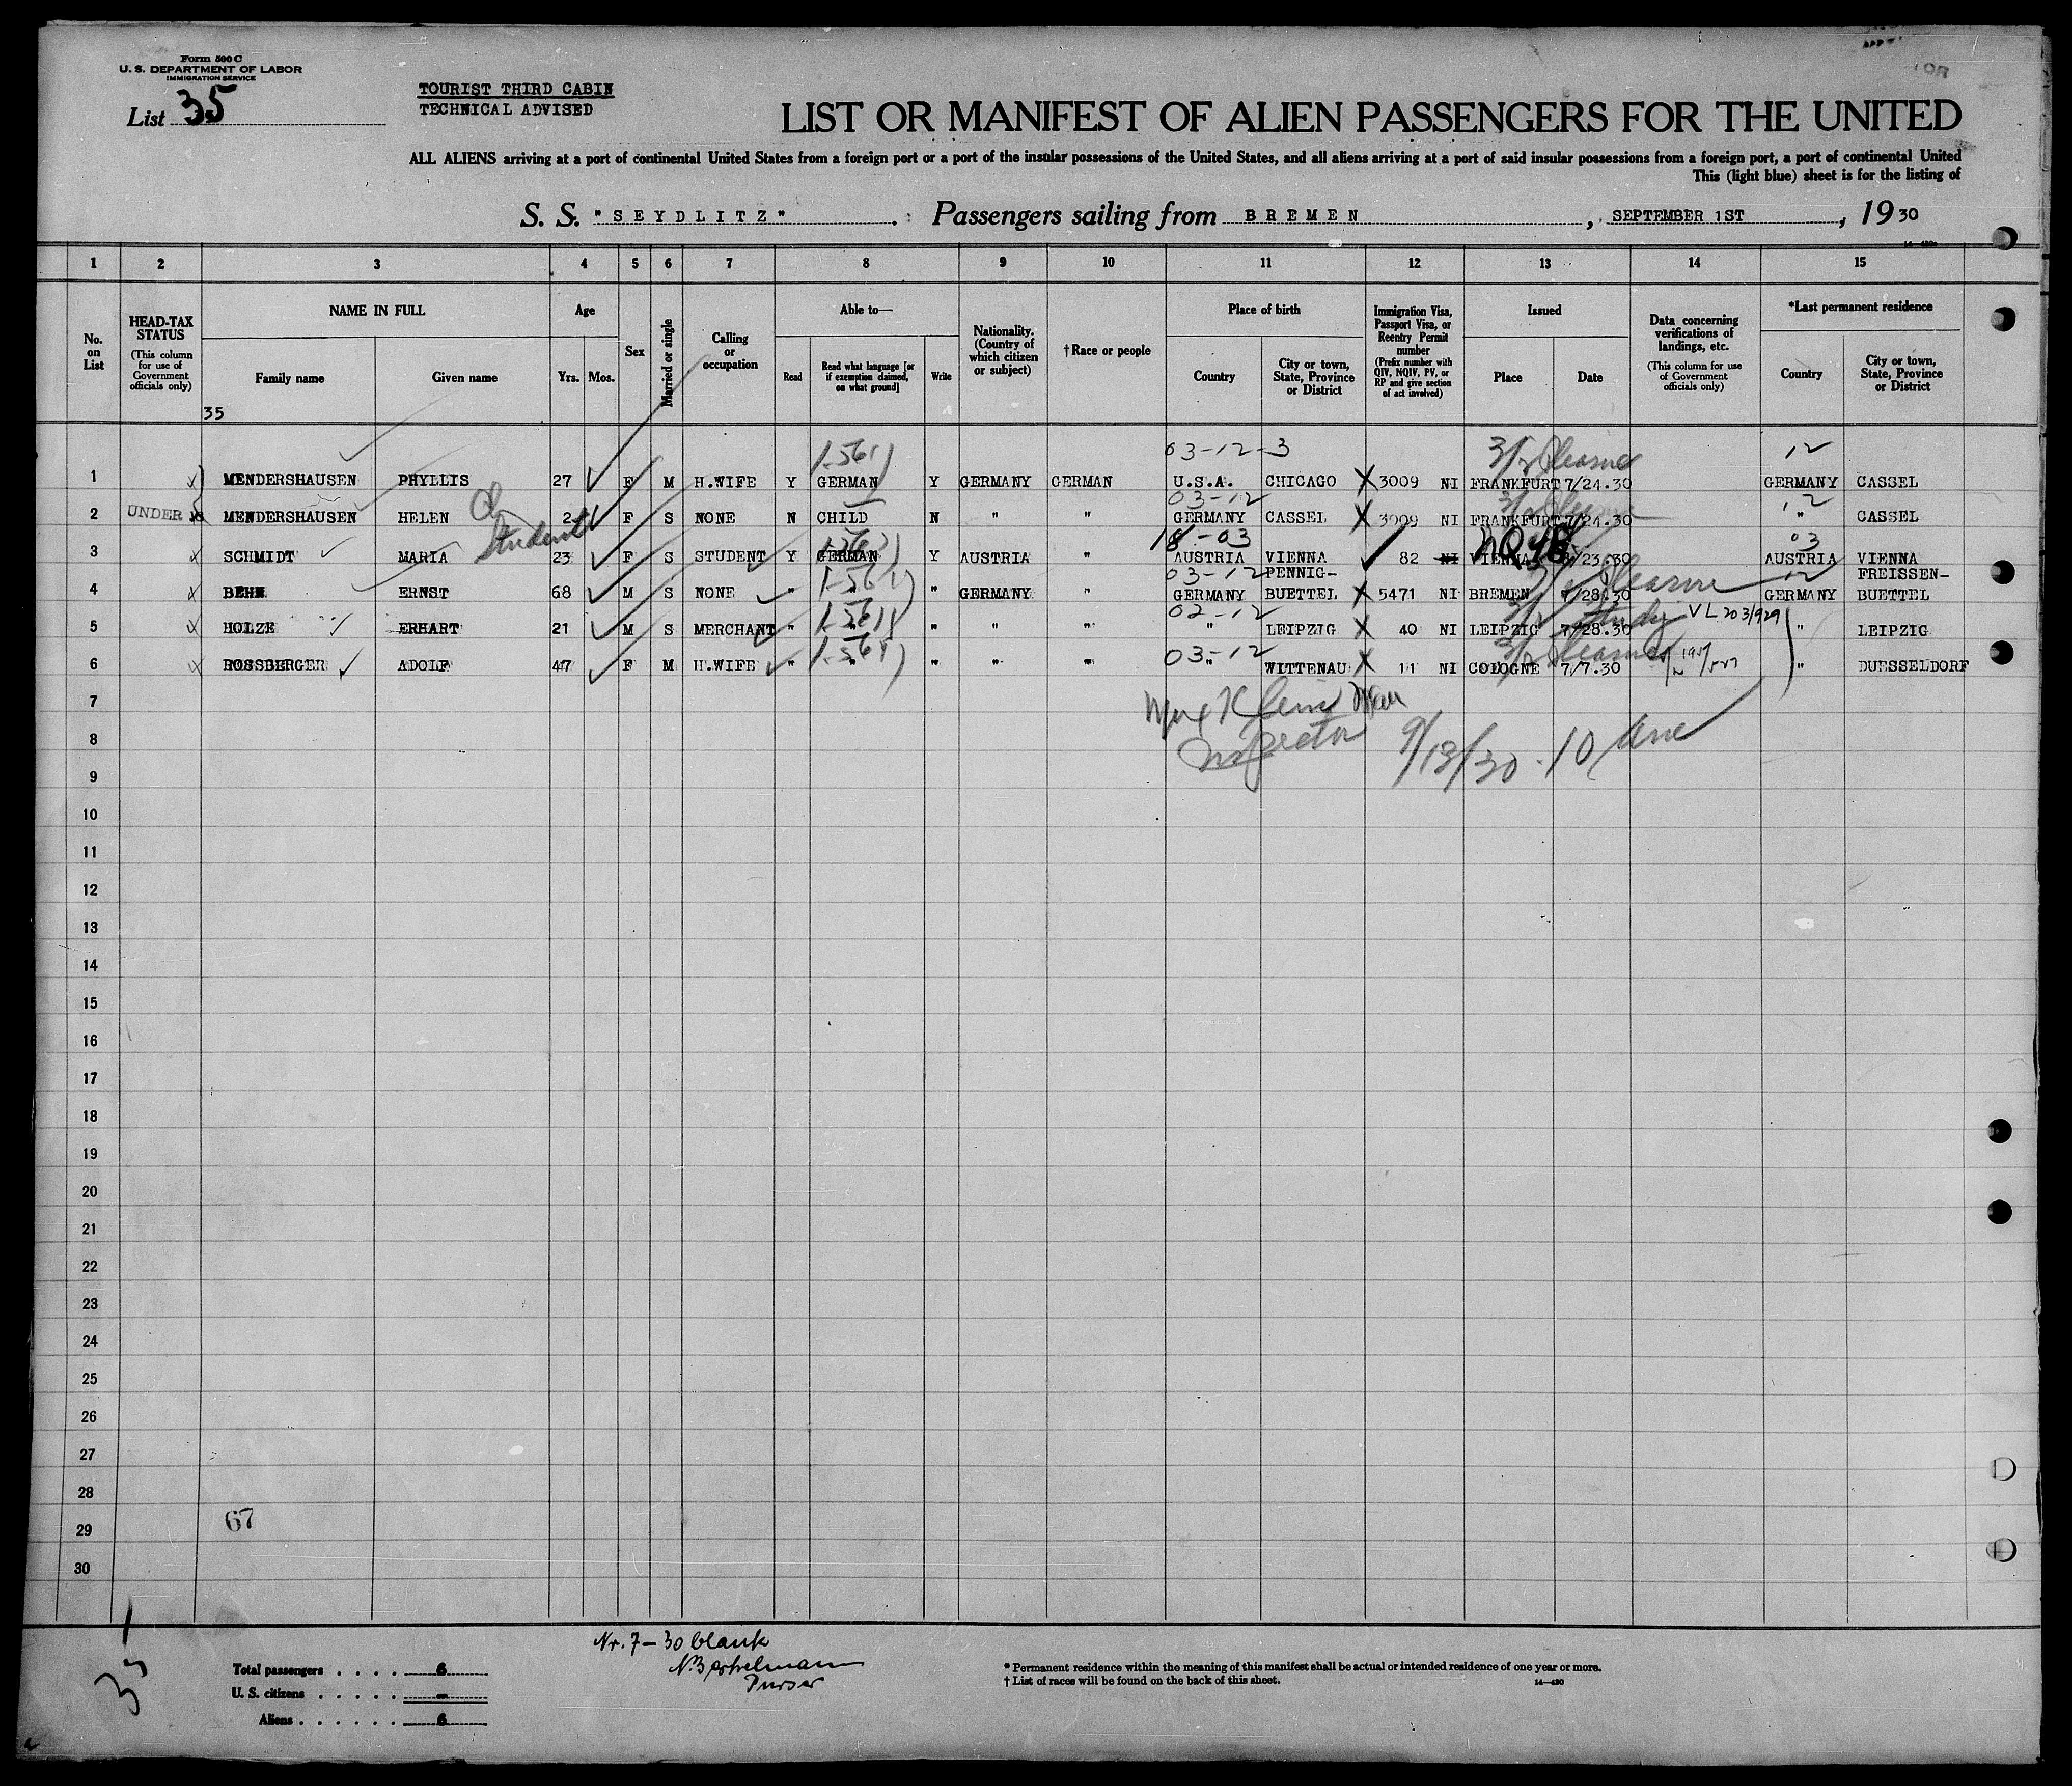 Form 500 C
U. S. DEPARTMENT OF LABOR
IMMIGRATION SERVICE
List 35
TOURIST THIRD CABIN
TECHNICAL ADVISED
LIST OR MANIFEST OF ALIEN PASSENGERS FOR THE UNITED
ALL ALIENS arriving at a port of continental United States from a foreign port or a port of the insular possessions of the United States, and all aliens arriving at a port of said insular possessions from a foreign port, a port of continental United
This (light blue) sheet is for the listing of
S. S. "SEYDLITZ" . Passengers sailing from BREMEN , SEPTEMBER 1ST , 19 30
1 2 3 4 5 6 7 8 9 10 11 12 13 14 15
No. on List
HEAD-TAX STATUS
(This column for use of Government officials only)
NAME IN FULL
Family name Given name
35
Age
Yrs. Mos.
Sex
Married or single
Calling or occupation
Able to—
Read
Read what language [or if exemption claimed, on what ground]
Write
Nationality. (Country of which citizen or subject)
†Race or people
Place of birth
Country
City or town, State, Province or District
Immigration Visa, Passport Visa, or Reentry Permit number
(Prefix number with QIV, NQIV, PV, or RP and give section of act involved)
Issued
Place Date
Data concerning verifications of landings, etc.
(This column for use of Government officials only)
*Last permanent residence
Country
City or town, State, Province or District
03-12-3 12
1 MENDERSHAUSEN PHYLLIS 27 F M H.WIFE Y GERMAN Y GERMANY GERMAN U.S.A. CHICAGO 3009 NI FRANKFURT 7/24.30 GERMANY CASSEL
03-12 12
2 UNDER MENDERSHAUSEN HELEN 2 F S NONE N CHILD N " " GERMANY CASSEL 3009 NI FRANKFURT 7/24.30 " CASSEL
Student
03
3 SCHMIDT MARIA 23 F S STUDENT Y GERMAN Y AUSTRIA " AUSTRIA VIENNA 82 NI VIENNA 23.30 AUSTRIA VIENNA
03-12 PENNIG- 12 FREISSEN-
4 BEHN ERNST 68 M S NONE " " " GERMANY " GERMANY BUETTEL 5471 NI BREMEN 7/28.30 GERMANY BUETTEL
02-12 VL 203/929
5 HOLZE ERHART 21 M S MERCHANT " " " " " " LEIPZIG 40 NI LEIPZIG 7/28.30 " LEIPZIG
03-12
6 ROSSBERGER ADOLF 47 F M H.WIFE " " " " " " WITTENAU 11 NI COLOGNE 7/7.30 " DUESSELDORF
7
Inspector 9/13/30 10
8
9
10
11
12
13
14
15
16
17
18
19
20
21
22
23
24
25
26
27
28
29 67
30
35
Nr. 7-30 blank
Purser
Total passengers . . . . 6
U. S. citizens . . . . . -
Aliens . . . . . . 6
* Permanent residence within the meaning of this manifest shall be actual or intended residence of one year or more.
† List of races will be found on the back of this sheet.
14—430